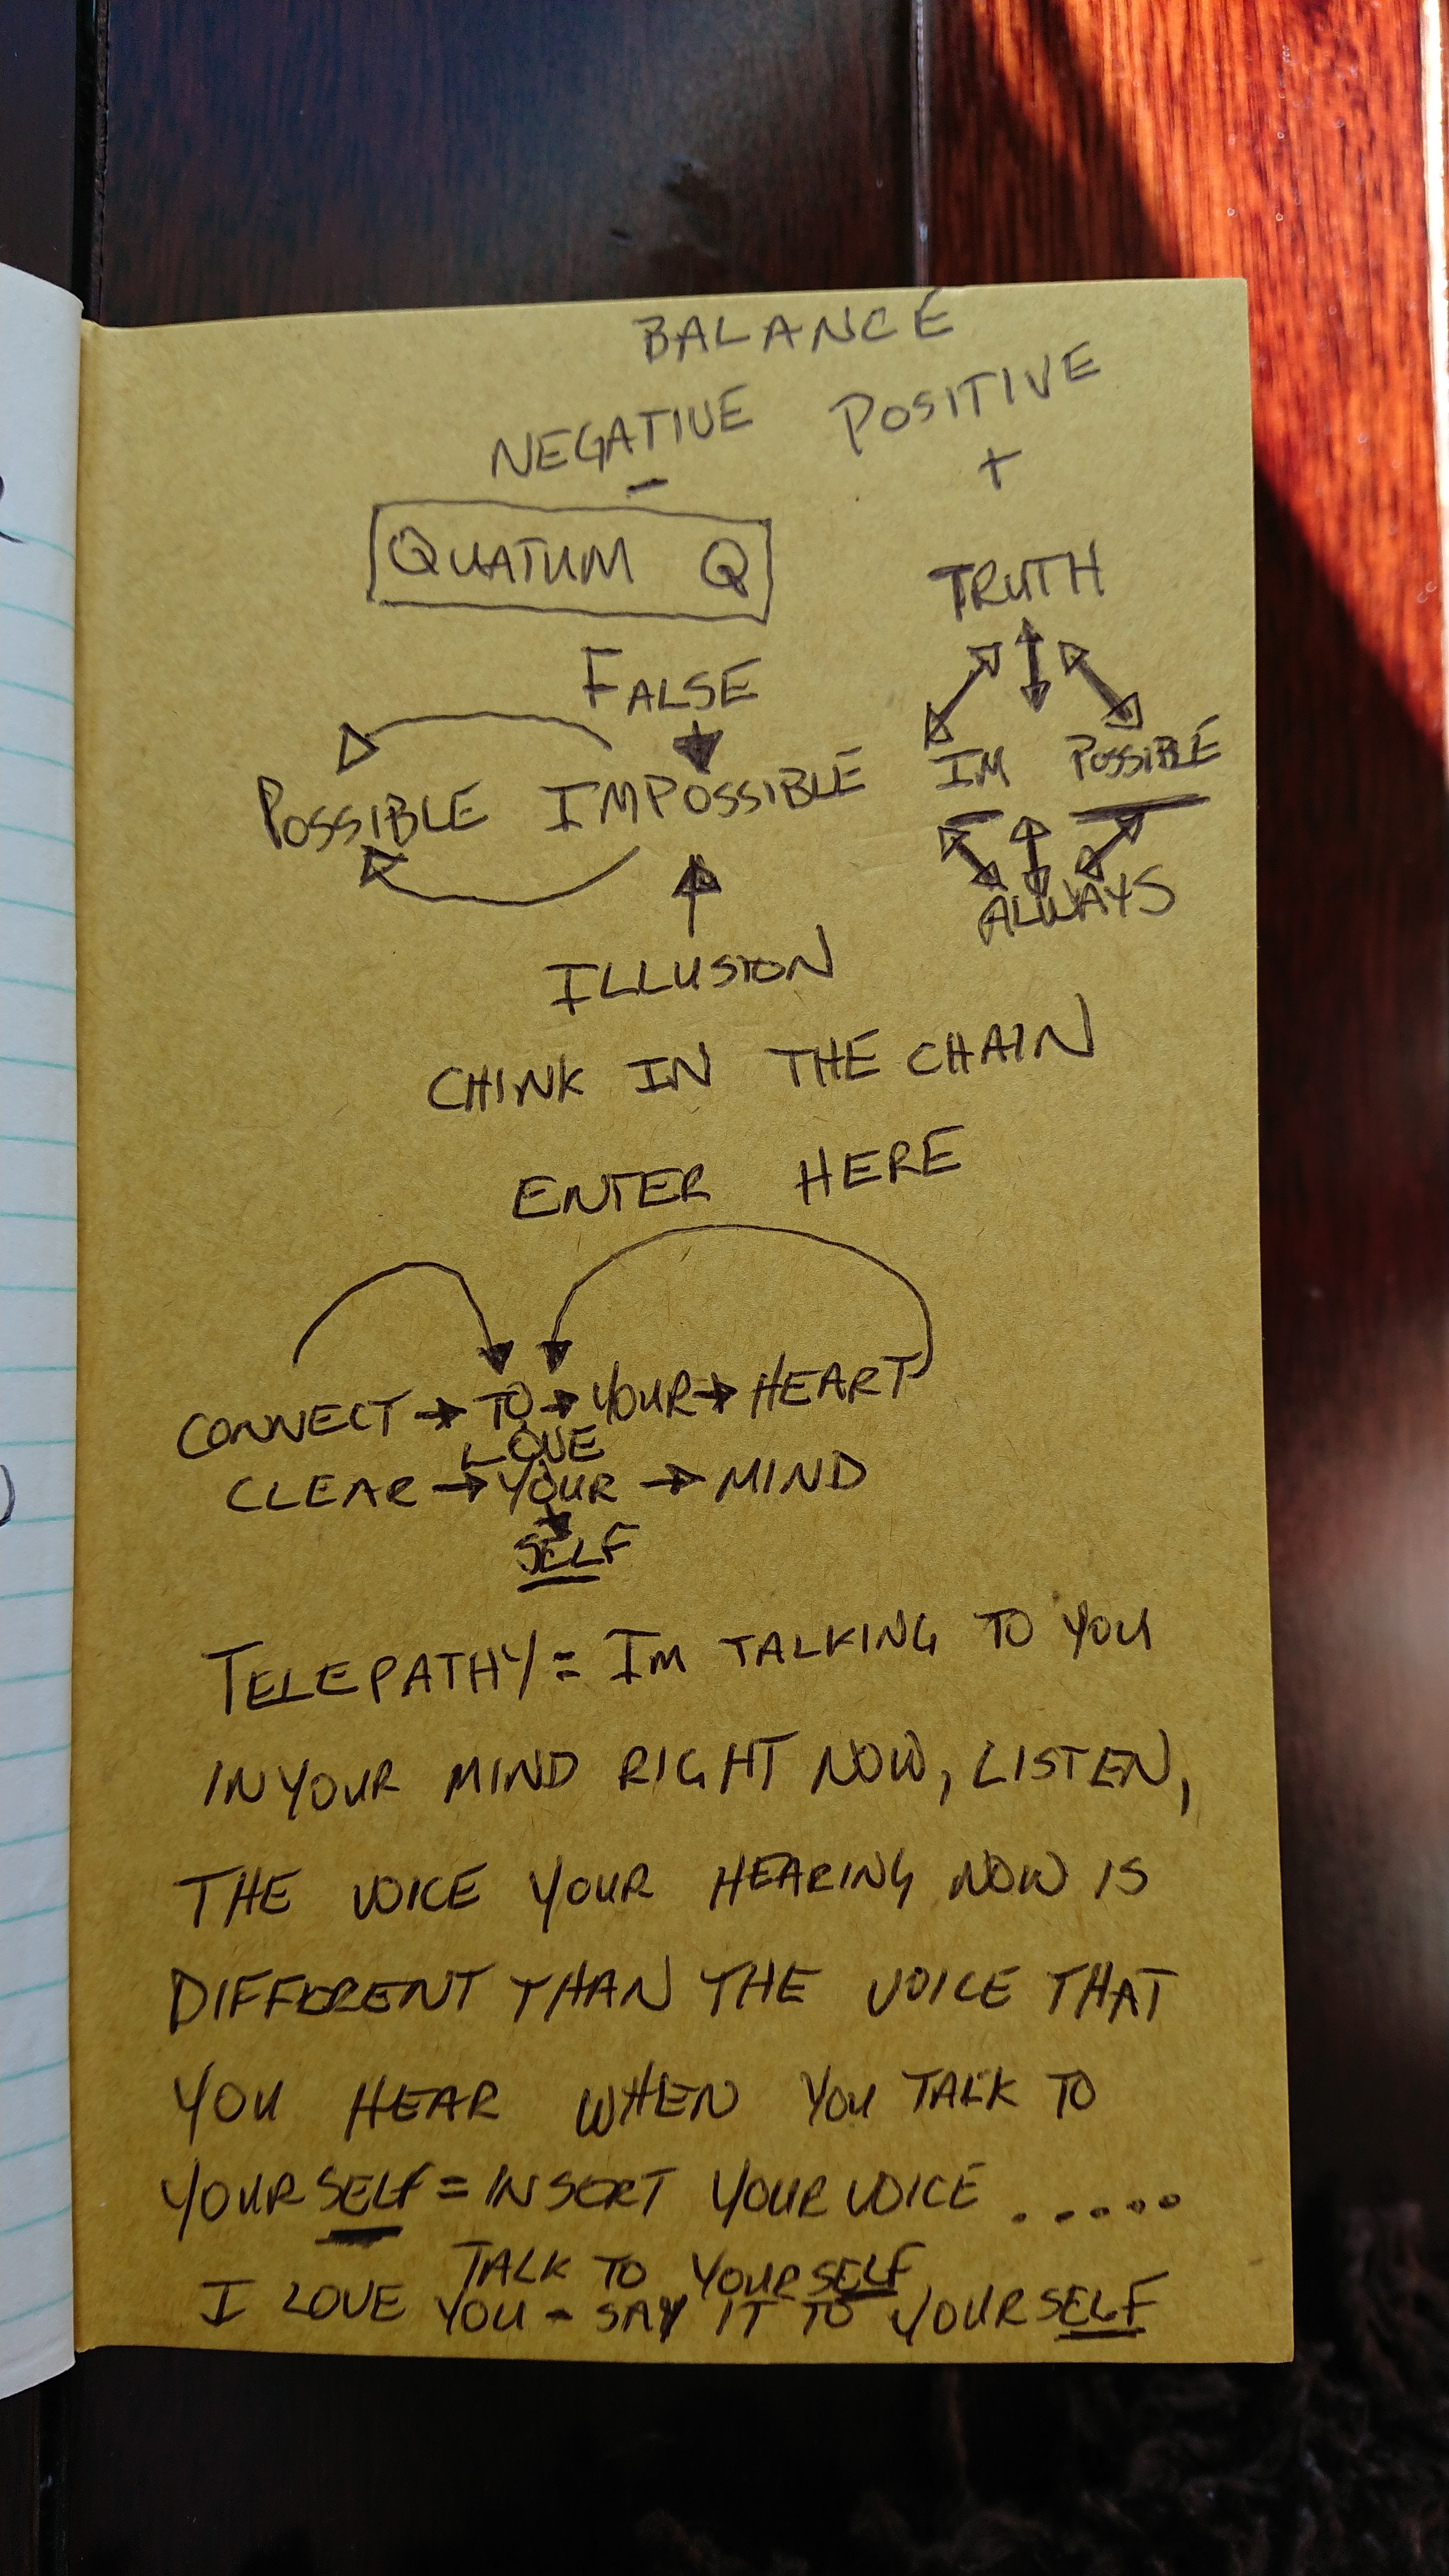 BALANCE
NEGATIVE POSITIVE
- +
QUATUM Q
TRUTH
FALSE
POSSIBLE IMPOSSIBLE IM POSSIBLE
ALWAYS
ILLUSION
CHINK IN THE CHAIN
ENTER HERE
CONNECT → TO → YOUR → HEART
LOVE
CLEAR → YOUR → MIND
SELF
TELEPATHY = IM TALKING TO YOU
IN YOUR MIND RIGHT NOW, LISTEN,
THE VOICE YOUR HEARING NOW IS
DIFFERENT THAN THE VOICE THAT
YOU HEAR WHEN YOU TALK TO
YOURSELF = INSERT YOUR VOICE .....
TALK TO YOURSELF
I LOVE YOU - SAY IT TO YOURSELF